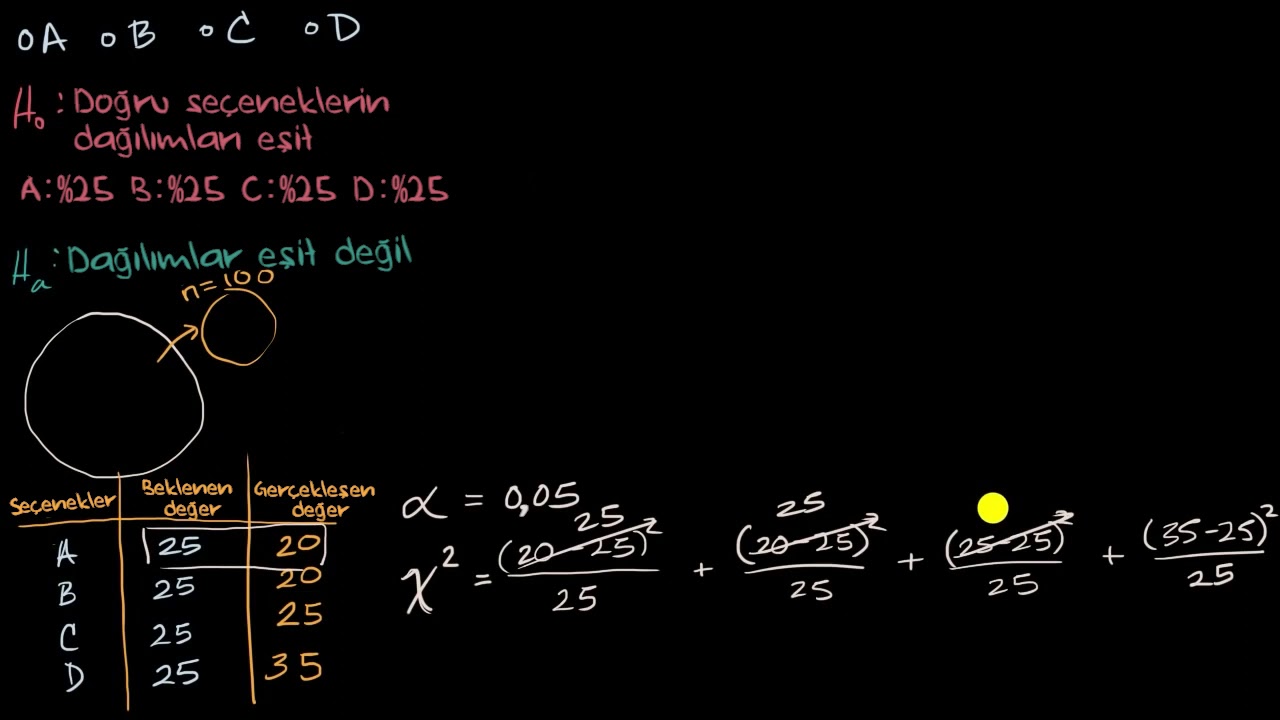 A B C D
H₀ : Doğru seçeneklerin
dağılımları eşit
A:%25 B:%25 C:%25 D:%25
Hₐ : Dağılımlar eşit değil
n=100
Seçenekler Beklenen değer Gerçekleşen değer
A 25 20
B 25 20
C 25 25
D 25 35
α = 0,05
25 25
χ² = (20-25)²/25 + (20-25)²/25 + (25-25)²/25 + (35-25)²/25